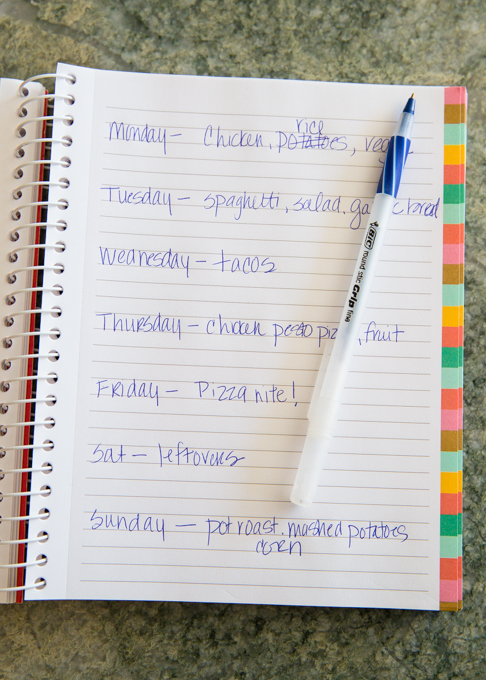 rice
Monday – Chicken, potatoes, veg
Tuesday – spaghetti, salad, ga c bread
Wednesday – tacos
Thursday – chicken pesto piz , fruit
Friday – Pizza nite!
Sat – leftovers
Sunday – pot roast, mashed potatoes
corn
BIC round stic Grip fine